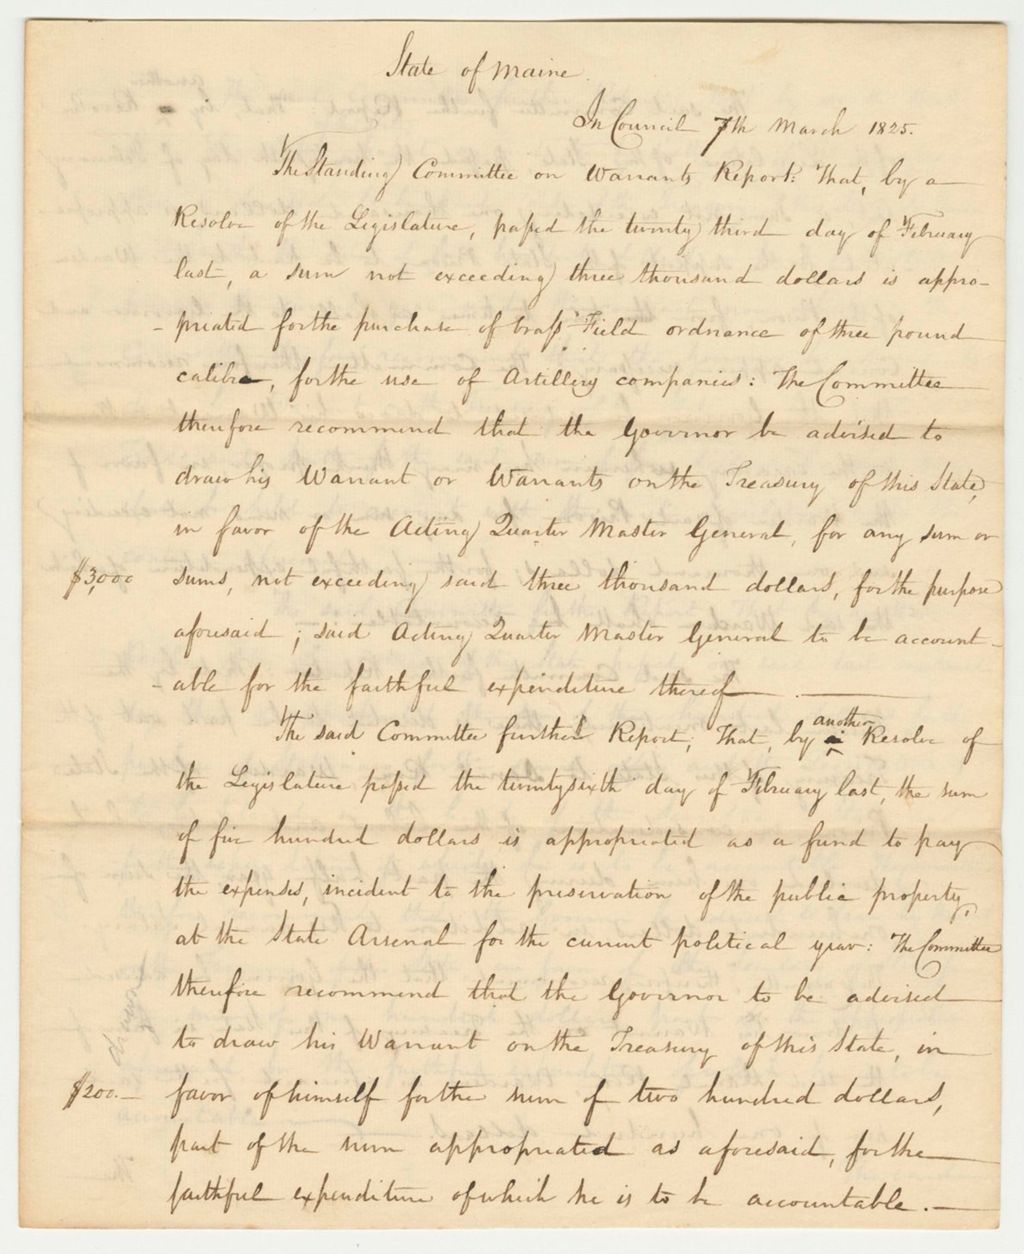 State of Maine.
In Council 7th March 1825.
The Standing Committee on Warrants Report: That, by a
Resolve of the Legislature, passed the twenty third day of February
last, a sum not exceeding three thousand dollars is appro-
-priated for the purchase of brass Field ordnance of three pound
calibre, for the use of Artillery companies: The Committee
therefore recommend that the Governor be advised to
draw his Warrant or Warrants on the Treasury of this State,
in favor of the Acting Quarter Master General, for any sum or
$3,000 sums, not exceeding said three thousand dollars, for the purpose
aforesaid; said Acting Quarter Master General to be account-
-able for the faithful expenditure thereof.
The said Committee further Report, That, by another Resolve of
the Legislature passed the twenty sixth day of February last, the sum
of five hundred dollars is appropriated as a fund to pay
the expenses, incident to the preservation of the public property,
at the State Arsenal for the current political year: The Committee
therefore recommend that the Governor to be advised
to draw his Warrant on the Treasury of this State, in
$200.— favor of himself for the sum of two hundred dollars,
part of the sum appropriated as aforesaid, for the
faithful expenditure of which he is to be accountable.—